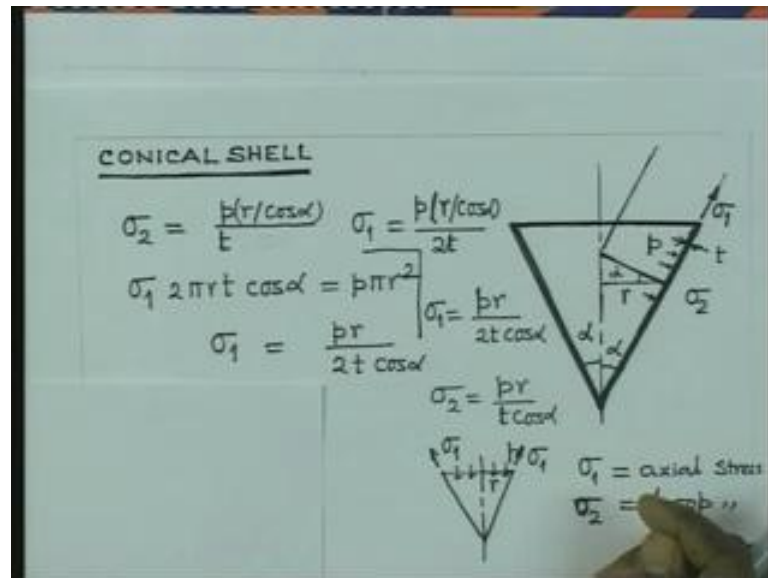 CONICAL SHELL
σ₂ = p(r/cosα)/t
σ₁ = p(r/cosα)/2t
σ₁ 2πrt cosα = pπr²
σ₁ = pr/2t cosα
σ₁ = pr/2t cosα
σ₂ = pr/t cosα
σ₁
p
t
α
r
σ₂
α
α
σ₁
p
σ₁
r
σ₁ = axial stress
σ₂ = "